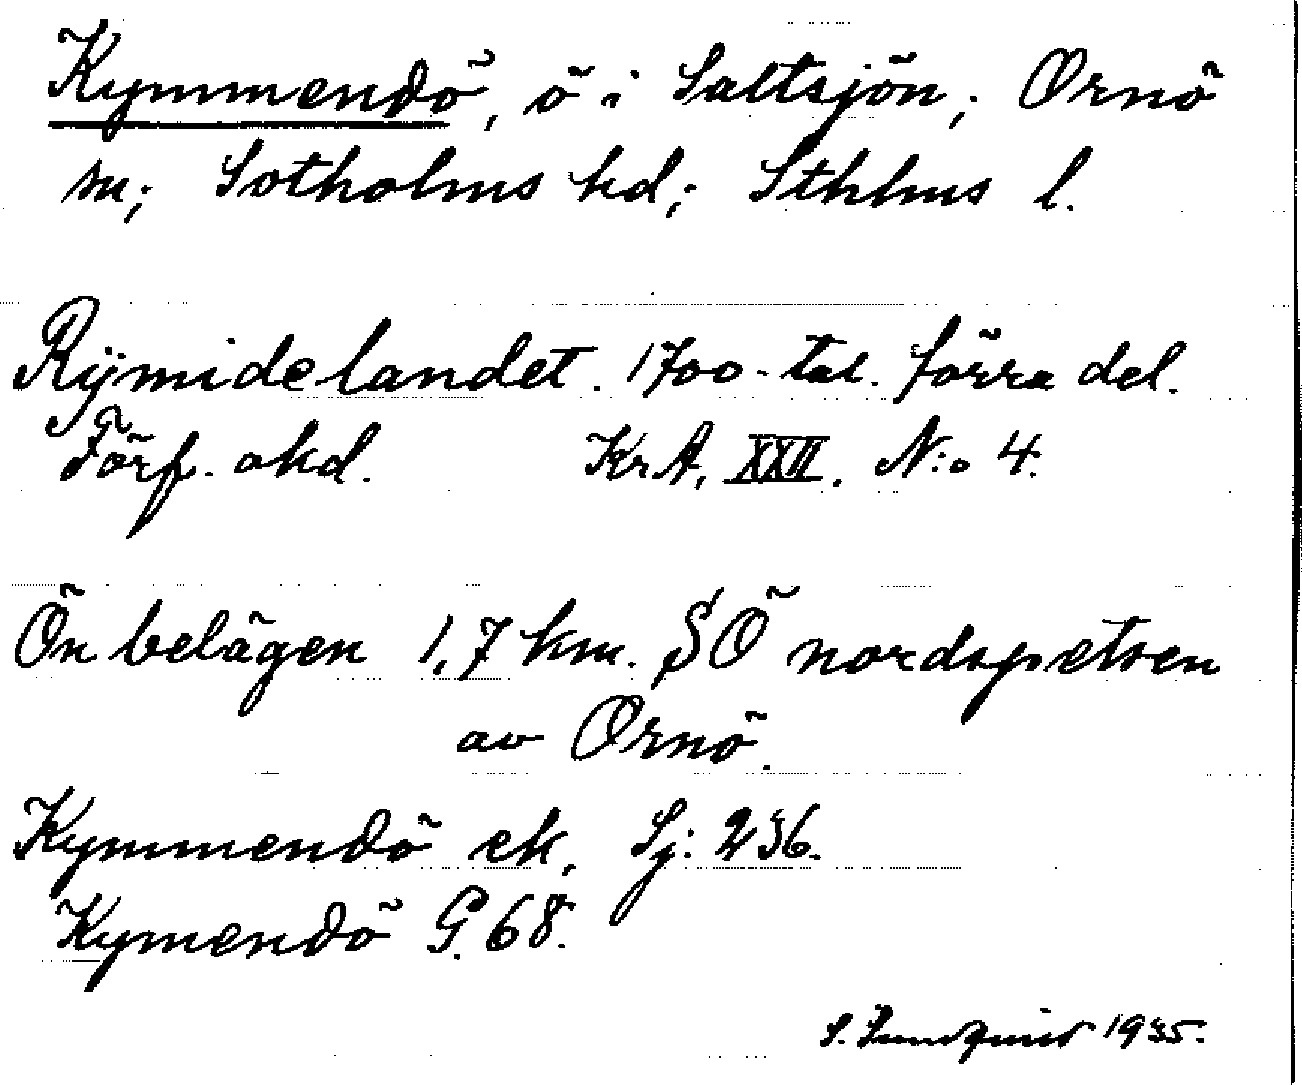 Kymmendö, ö i Saltsjön, Ornö
sn; Sotholms hd; Sthlms l.
Rÿmidelandet. 1700-tal. förra del.
Förf. okd. KrA, XXII. N:o 4.
Ön belägen 1,7 km. SÖ nordspetsen
av Ornö.
Kymmendö ek, Sj: 236.
Kymendö G. 68.
S. Lundquist 1935.